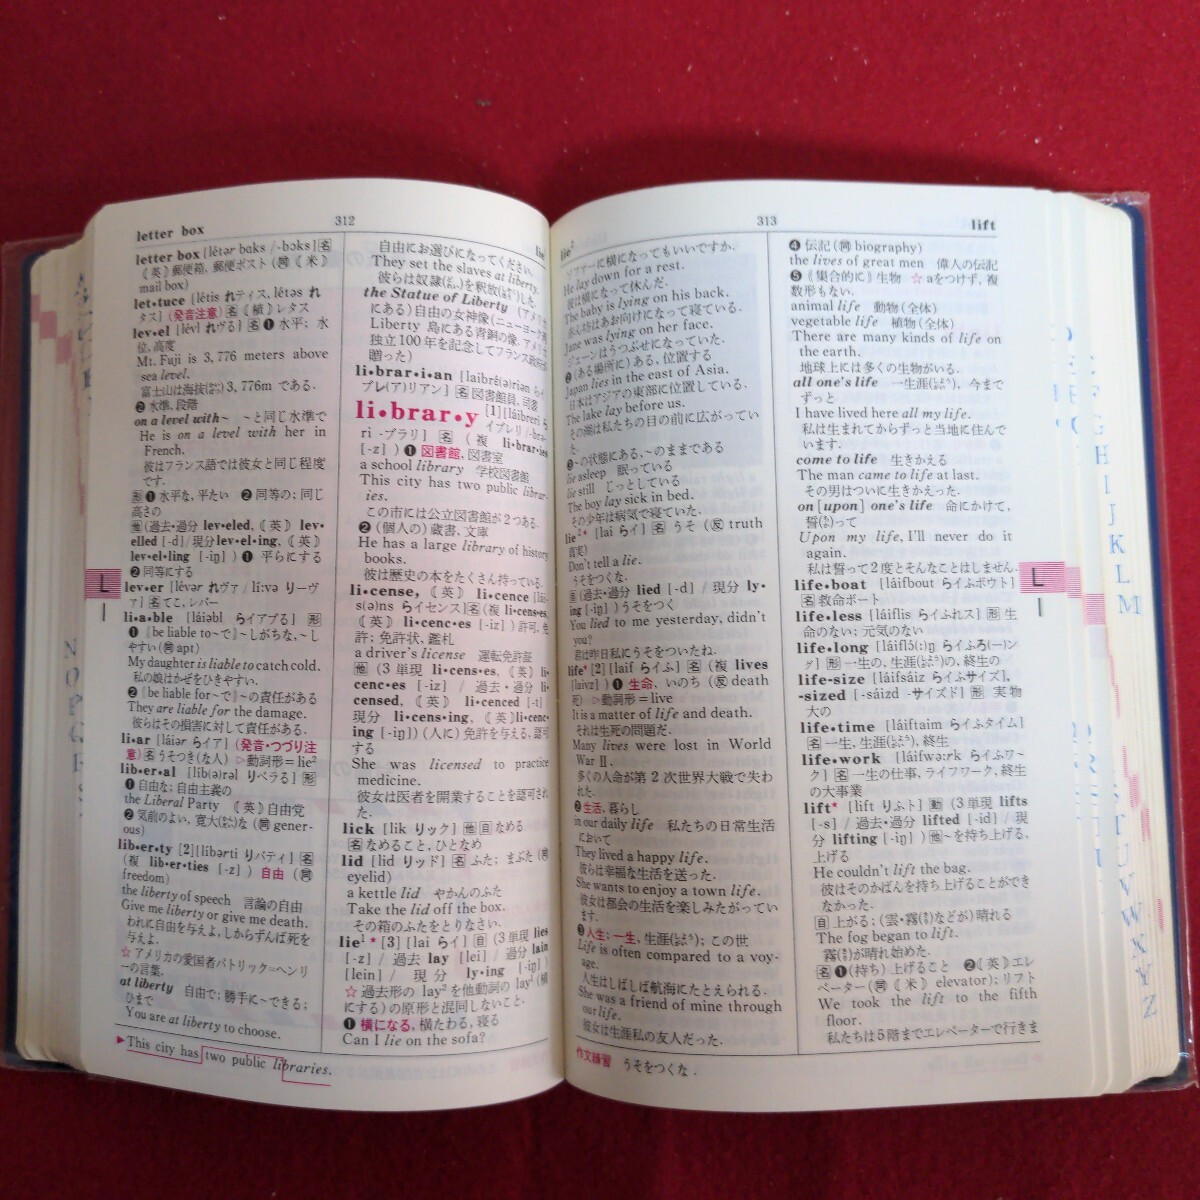 letter box
312
lie¹
letter box [létər bɑks /-bɔks] 名
《英》郵便箱, 郵便ポスト (同《米》
mail box)
let•tuce [létis れティス, létəs れ
タス] (発音注意) 名 《植》レタス
lev•el [lévl れヴる] 名 ❶ 水平; 水
位, 高度
Mt. Fuji is 3,776 meters above
sea level.
富士山は海抜3,776m である.
❷ 水準, 段階
on a level with~ ~と同じ水準で
He is on a level with her in
French.
彼はフランス語では彼女と同じ程度
です.
形 ❶ 水平な, 平たい ❷ 同等の; 同じ
高さの
他 (過去・過分 lev•eled, 《英》 lev•
elled [-d] / 現分 lev•el•ing, 《英》
lev•el•ling [-iŋ]) ❶ 平らにする
❷ 同等にする
lev•er [lévər れヴァ / líːvə りーヴ
ァ] 名 てこ, レバー
li•a•ble [láiəbl らイアブる] 形
❶『be liable to~で』~しがちな, ~し
やすい (同 apt)
My daughter is liable to catch cold.
私の娘はかぜをひきやすい.
❷『be liable for~で』~の責任がある
They are liable for the damage.
彼らはその損害に対して責任がある.
li•ar [láiər らイア] (発音・つづり注
意) 名 うそつき(な人) ▷動詞形=lie²
lib•er•al [líb(ə)rəl りベラる] 形
❶ 自由な; 自由主義の
the Liberal Party 《英》自由党
❷ 気前のよい, 寛大な (同 gener-
ous)
lib•er•ty [2] [líbərti りバティ] 名
(複 lib•er•ties [-z]) 自由 (同
freedom)
the liberty of speech 言論の自由
Give me liberty or give me death.
われに自由を与えよ, しからずんば死を
与えよ.
☆ アメリカの愛国者パトリック=ヘンリ
ーの言葉.
at liberty 自由で; 勝手に~できる;
ひまで
You are at liberty to choose.
自由にお選びになってください.
They set the slaves at liberty.
彼らは奴隷を釈放した.
the Statue of Liberty (アメリカ
にある) 自由の女神像 (ニューヨーク港
Liberty 島にある青銅の像. アメリカ
独立100年を記念してフランス政府が
贈った)
li•brar•i•an [laibré(ə)riən らイ
ブレ(ア)リアン] 名 図書館員, 司書
li•brar•y [1] [láibreri ら
イブレリ / -bra-
ri -ブラリ] 名 (複 li•brar•ies
[-z]) ❶ 図書館, 図書室
a school library 学校図書館
This city has two public librar-
ies.
この市には公立図書館が2つある.
❷ (個人の) 蔵書, 文庫
He has a large library of history
books.
彼は歴史の本をたくさん持っている.
li•cense, 《英》 li•cence [lái-
s(ə)ns らイセンス] 名 (複 li•cens•es,
《英》 li•cenc•es [-iz]) 許可, 免
許; 免許状, 鑑札
a driver's license 運転免許証
他 (3 単現 li•cens•es, 《英》 li•
cenc•es [-iz] / 過去・過分 li•
censed, 《英》 li•cenced [-t] /
現分 li•cens•ing, 《英》 li•cenc•
ing [-iŋ]) (人に) 免許を与える, 認可
する
She was licensed to practice
medicine.
彼女は医者を開業することを認可され
た.
lick [lik りック] 他 自 なめる
名 なめること, ひとなめ
lid [lid りッド] 名 ふた; まぶた (同
eyelid)
a kettle lid やかんのふた
Take the lid off the box.
その箱のふたをとりなさい.
lie¹ * [3] [lai らイ] 自 (3 単現 lies
[-z] / 過去 lay [lei] / 過分 lain
[lein] / 現分 ly•ing [-iŋ])
☆ 過去形の lay² を他動詞の lay¹ (横
にする) の原形と混同しないこと.
❶ 横になる, 横たわる, 寝る
Can I lie on the sofa?
▶This city has two public libraries.
L
lie²
313
lift
ソファーに横になってもいいですか.
He lay down for a rest.
彼は横になって休んだ.
The baby is lying on his back.
赤ん坊はあお向けになって寝ている.
Jane was lying on her face.
ジェーンはうつぶせになっていた.
❷ (ある場所に) ある, 位置する
Japan lies in the east of Asia.
日本はアジアの東部に位置している.
The lake lay before us.
その湖は私たちの目の前に広がってい
た.
❸ ~の状態にある, ~のままである
lie asleep 眠っている
lie still じっとしている
The boy lay sick in bed.
その少年は病気で寝ていた.
lie² * [lai らイ] 名 うそ (反 truth
真実)
Don't tell a lie.
うそをつくな.
自 (過去・過分 lied [-d] / 現分 ly•
ing [-iŋ]) うそをつく
You lied to me yesterday, didn't
you?
君は昨日私にうそをついたね.
life* [2] [laif らイふ] 名 (複 lives
[laivz]) ❶ 生命, いのち (反 death
死) ▷動詞形=live
It is a matter of life and death.
それは生死の問題だ.
Many lives were lost in World
War II.
多くの人命が第2次世界大戦で失わ
れた.
❷ 生活, 暮らし
in our daily life 私たちの日常生活
において
They lived a happy life.
彼らは幸福な生活を送った.
She wants to enjoy a town life.
彼女は都会の生活を楽しみたがってい
ます.
❸ 人生; 一生, 生涯; この世
Life is often compared to a voy-
age.
人生はしばしば航海にたとえられる.
She was a friend of mine through
our life.
彼女は生涯私の友人だった.
❹ 伝記 (同 biography)
the lives of great men 偉人の伝記
❺ 《集合的に》生物 ☆ aをつけず, 複
数形もない.
animal life 動物 (全体)
vegetable life 植物 (全体)
There are many kinds of life on
the earth.
地球上には多くの生物がいる.
all one's life 一生涯, 今まで
ずっと
I have lived here all my life.
私は生まれてからずっと当地に住んで
います.
come to life 生きかえる
The man came to life at last.
その男はついに生きかえった.
on [upon] one's life 命にかけて,
誓って
Upon my life, I'll never do it
again.
私は誓って2度とそんなことはしません.
life•boat [láifbout らイふボウト]
名 救命ボート
life•less [láiflis らイふれス] 形 生
命のない; 元気のない
life•long [láiflɔ(ː)ŋ らイふろ(ー)ン
グ] 形 一生の, 生涯の, 終生の
life-size [láifsáiz らイふサイズ],
-sized [-sáizd -サイズド] 形 実物
大の
life•time [láiftaim らイふタイム]
名 一生, 生涯, 終生
life•work [láifwəːrk らイふワ~
ク] 名 一生の仕事, ライフワーク, 終生
の大事業
lift* [lift りふト] 動 (3 単現 lifts
[-s] / 過去・過分 lifted [-id] / 現
分 lifting [-iŋ]) 他 ~を持ち上げる,
上げる
He couldn't lift the bag.
彼はそのかばんを持ち上げることができ
なかった.
自 上がる; (雲・霧などが) 晴れる
The fog began to lift.
霧が晴れ始めた.
名 ❶ (持ち) 上げること ❷《英》エレ
ベーター (同《米》 elevator); リフト
We took the lift to the fifth
floor.
私たちは5階までエレベーターで行きま
作文練習 うそをつくな.
L